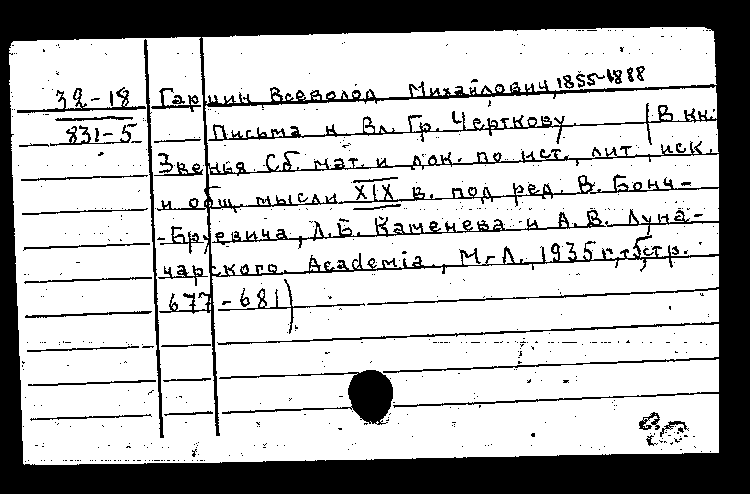 32-18
831-5
Гаршин, Всеволод Михайлович, 1855-1888
Письма к Вл. Гр. Черткову. (В кн.:
Звенья Сб. мат. и док. по ист., лит., иск.
и общ. мысли XIX в. под ред. В. Бонч-
-Бруевича, Л.Б. Каменева и А.В. Луна-
чарского. Academia, М.-Л., 1935 г., т.5, стр.
677-681)